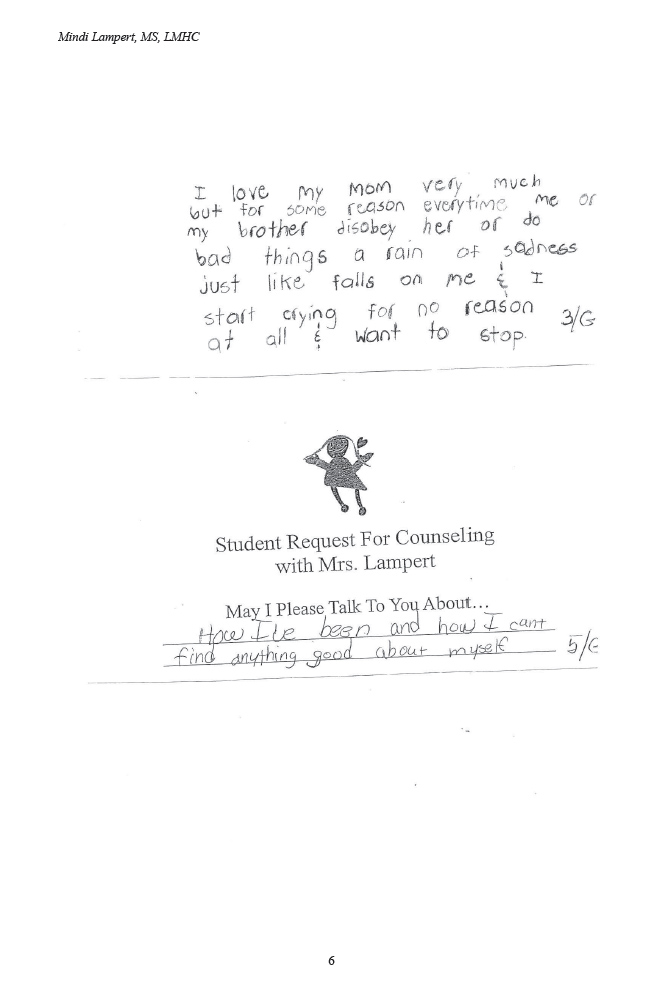 Mindi Lampert, MS, LMHC
I love my Mom very much
but for some reason everytime me or
my brother disobey her or do
bad things a rain of sadness
just like falls on me & I
start crying for no reason 3/G
at all & want to stop.
Student Request For Counseling
with Mrs. Lampert
May I Please Talk To You About...
How I've been and how I cant
find anything good about myself 5/G
6